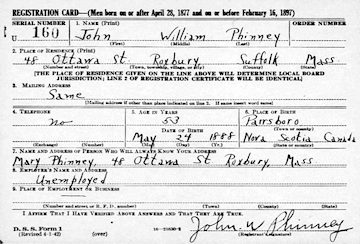 REGISTRATION CARD—(Men born on or after April 28, 1877 and on or before February 16, 1897)
SERIAL NUMBER 1. NAME (Print) ORDER NUMBER
U 160 John William Phinney
(First) (Middle) (Last)
2. PLACE OF RESIDENCE (Print)
48 Ottawa St Roxbury, Suffolk Mass
(Number and street) (Town, township, village, or city) (County) (State)
[THE PLACE OF RESIDENCE GIVEN ON THE LINE ABOVE WILL DETERMINE LOCAL BOARD
JURISDICTION; LINE 2 OF REGISTRATION CERTIFICATE WILL BE IDENTICAL]
3. MAILING ADDRESS
Same
[Mailing address if other than place indicated on line 2. If same insert word same]
4. TELEPHONE 5. AGE IN YEARS 6. PLACE OF BIRTH
no 53 Parrsboro
DATE OF BIRTH (Town or county)
May 24 1888 Nova Scotia Canada
(Exchange) (Number) (Mo.) (Day) (Yr.) (State or country)
7. NAME AND ADDRESS OF PERSON WHO WILL ALWAYS KNOW YOUR ADDRESS
Mary Phinney, 48 Ottawa St Roxbury, Mass
8. EMPLOYER'S NAME AND ADDRESS
Unemployed
9. PLACE OF EMPLOYMENT OR BUSINESS
(Number and street or R. F. D. number) (Town) (County) (State)
I AFFIRM THAT I HAVE VERIFIED ABOVE ANSWERS AND THAT THEY ARE TRUE.
D. S. S. Form 1
(Revised 4-1-42) (over) John W Phinney
(Registrant's signature)